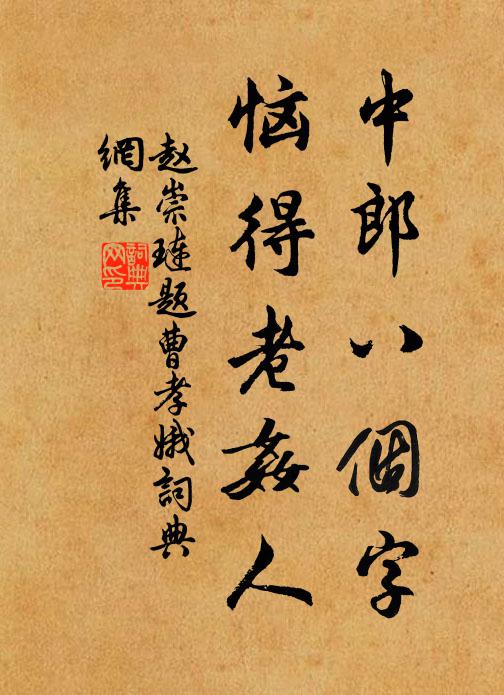 中郎八個字
恼得老姦人
赵崇琏題曹孝娥詞典
網集
詞典
网印